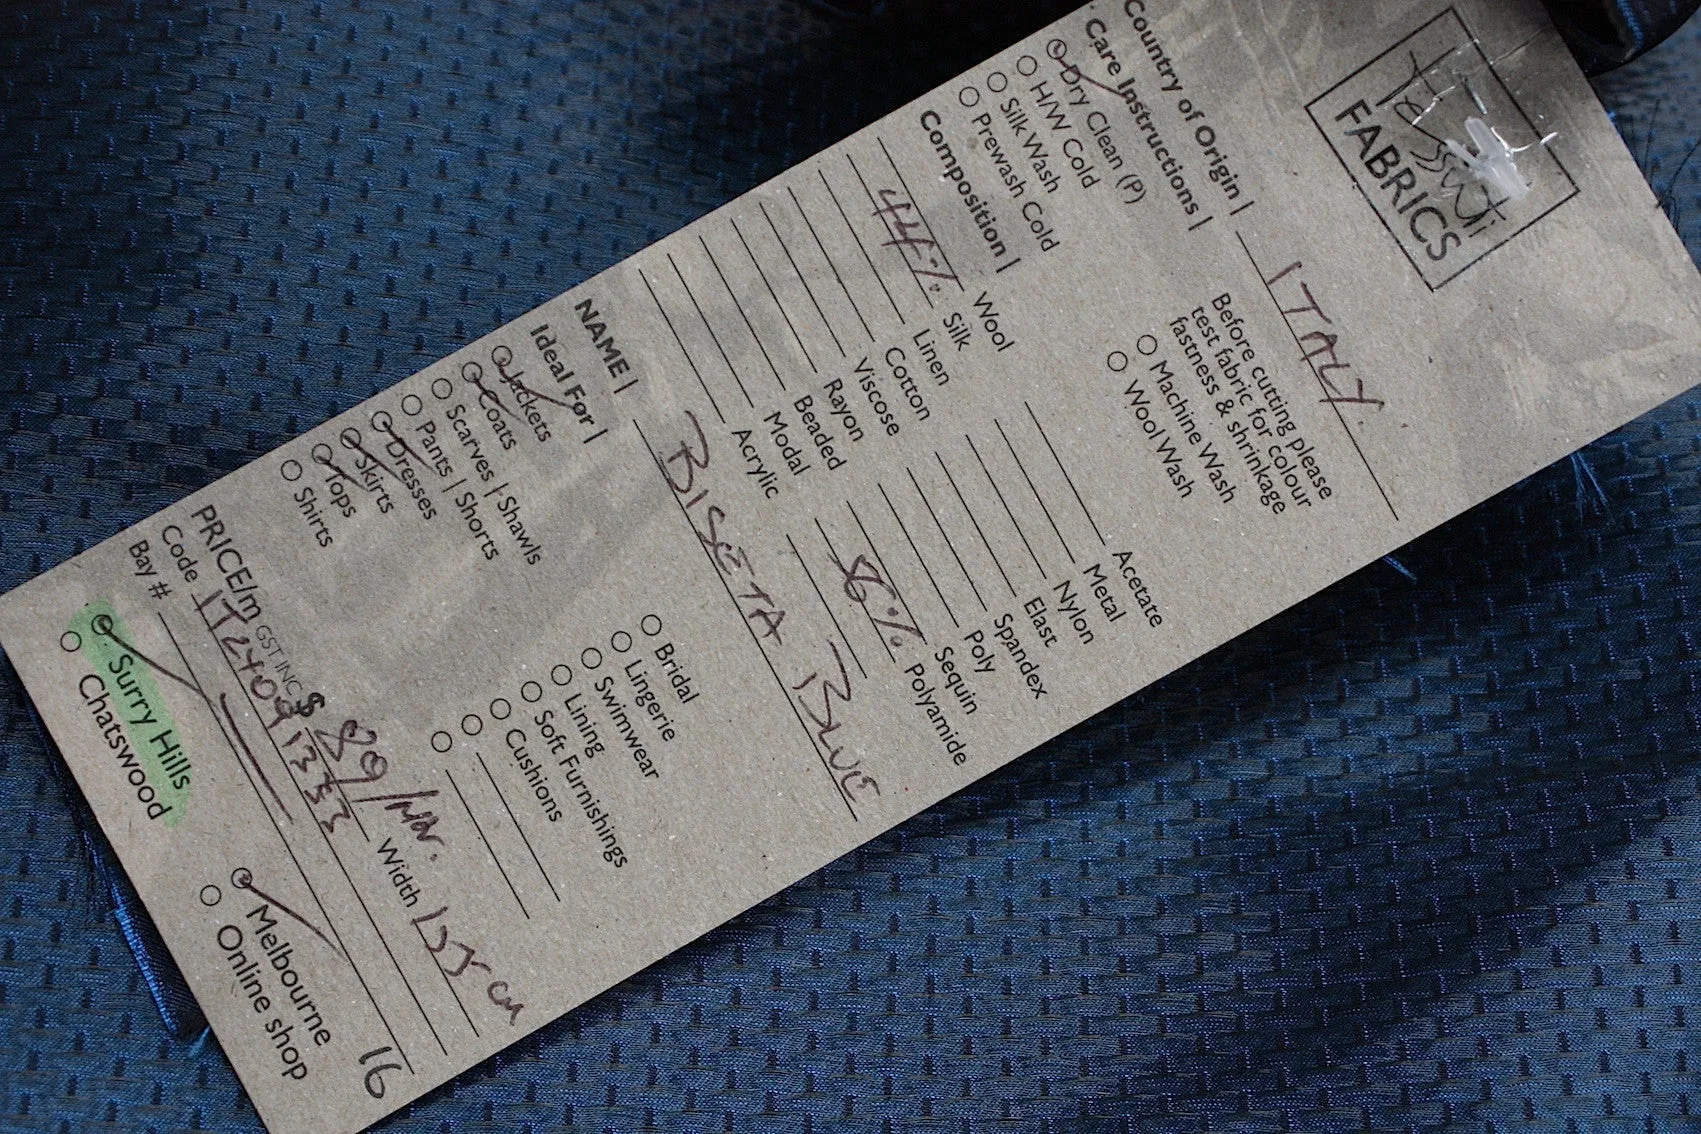 Tessuti
FABRICS
Country of Origin | ITALY
Care Instructions |
Before cutting please
test fabric for colour
fastness & shrinkage
Dry Clean (P)
H/W Cold
Machine Wash
Silk Wash
Wool Wash
Prewash Cold
Composition |
Wool
Acetate
44% Silk
Metal
Linen
Nylon
Cotton
Elast
Viscose
Spandex
Rayon
Poly
Beaded
Sequin
Modal
56% Polyamide
Acrylic
NAME | BISETA BLUE
Ideal For |
Jackets
Bridal
Coats
Lingerie
Scarves | Shawls
Swimwear
Pants | Shorts
Lining
Dresses
Soft Furnishings
Skirts
Cushions
Tops
Shirts
PRICE/m GST INC $ 89/Mtr. Width 155 cm
Code IT240913553
Bay # 16
Surry Hills
Melbourne
Chatswood
Online shop